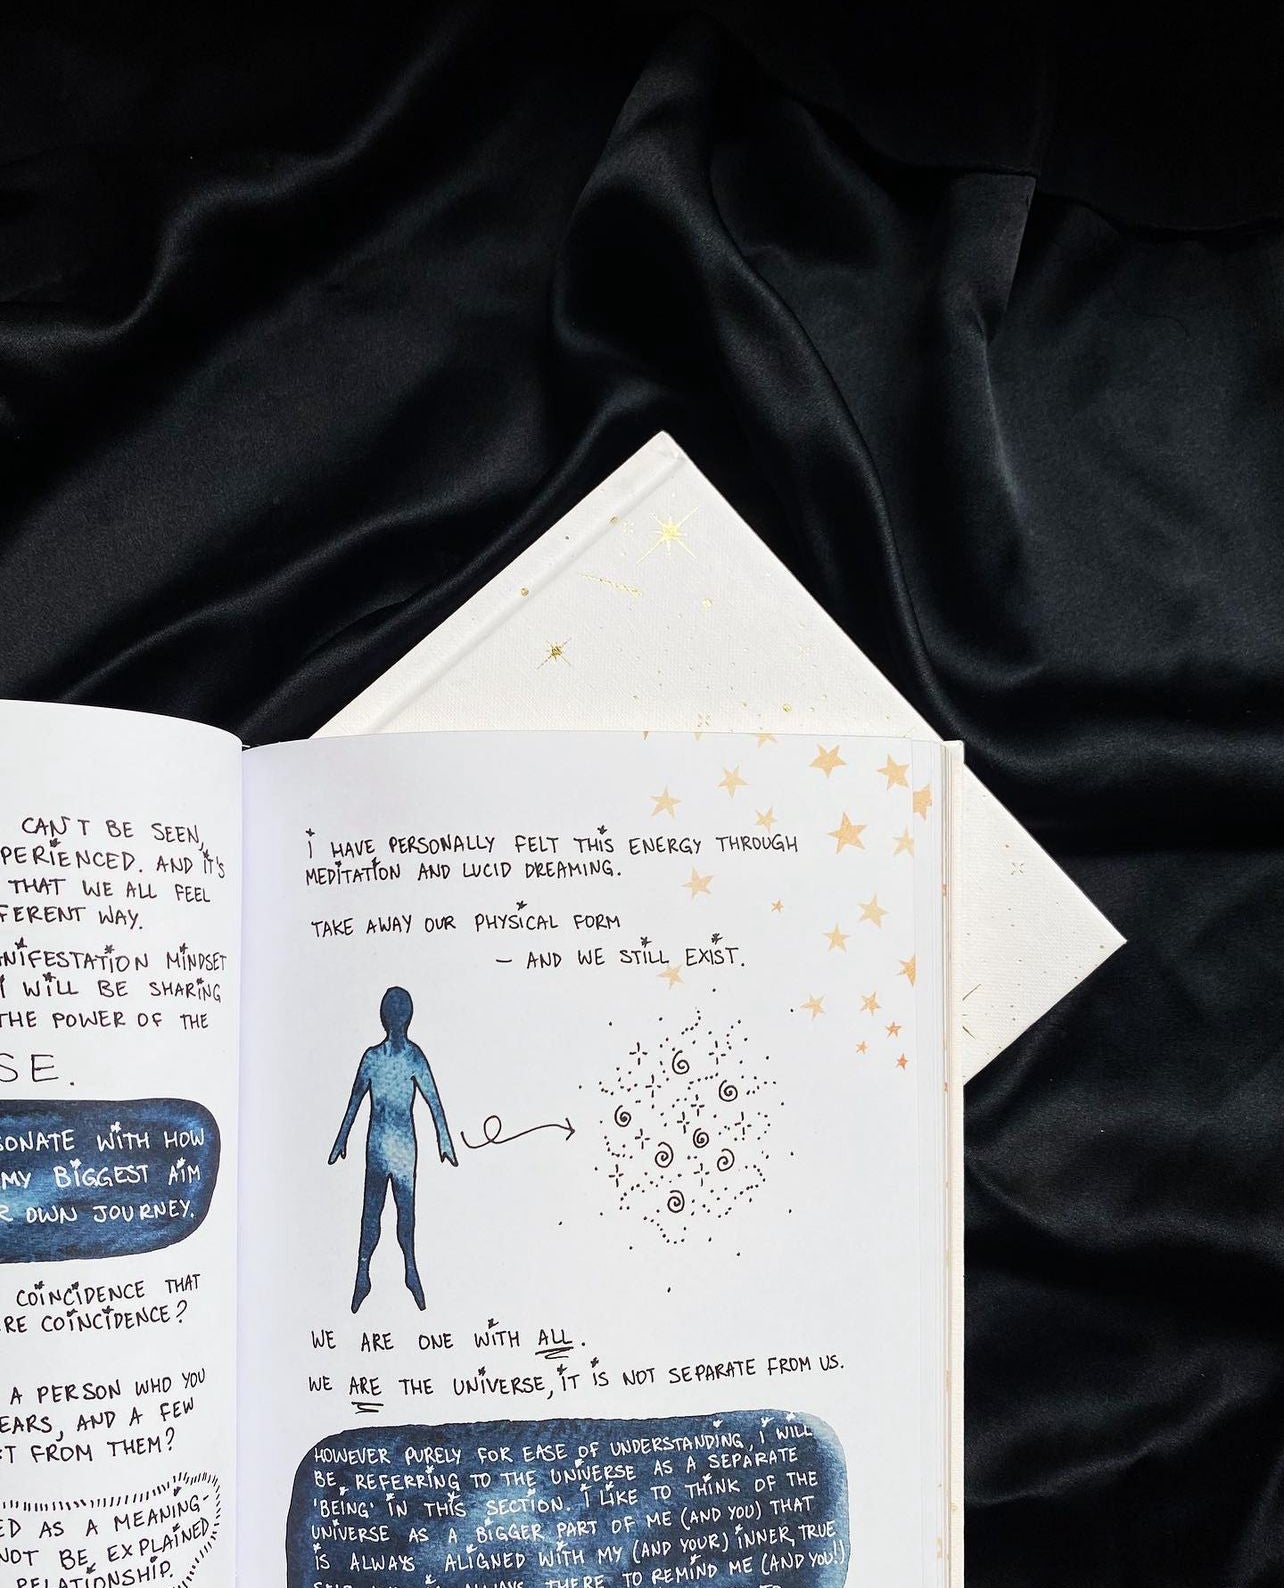 CAN'T BE SEEN,
PERIENCED. AND IT'S
THAT WE ALL FEEL
FERENT WAY.
NIFESTATION MINDSET
I WILL BE SHARING
THE POWER OF THE
SE.
SONATE WITH HOW
MY BIGGEST AIM
R OWN JOURNEY.
COINCIDENCE THAT
RE COINCIDENCE?
A PERSON WHO YOU
EARS, AND A FEW
T FROM THEM?
ED AS A MEANING-
NOT BE EXPLAINED
RELATIONSHIP.
I HAVE PERSONALLY FELT THIS ENERGY THROUGH
MEDITATION AND LUCID DREAMING.
TAKE AWAY OUR PHYSICAL FORM
– AND WE STILL EXIST.
WE ARE ONE WITH ALL.
WE ARE THE UNIVERSE, IT IS NOT SEPARATE FROM US.
HOWEVER PURELY FOR EASE OF UNDERSTANDING, I WILL
BE REFERRING TO THE UNIVERSE AS A SEPARATE
'BEING' IN THIS SECTION. I LIKE TO THINK OF THE
UNIVERSE AS A BIGGER PART OF ME (AND YOU) THAT
IS ALWAYS ALIGNED WITH MY (AND YOUR) INNER, TRUE
ALWAYS THERE TO REMIND ME (AND YOU!)